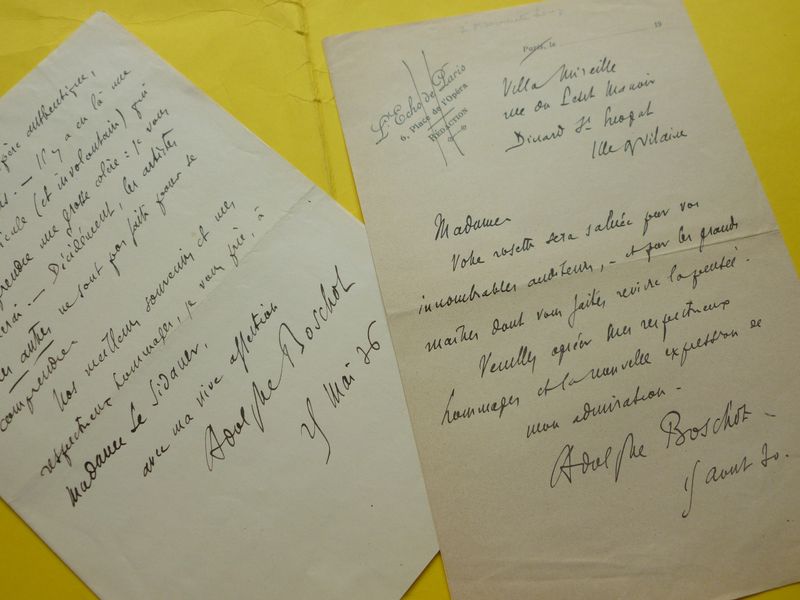 père authentique,
– Il y a eu là une
(et involontaire) qui
prendre une grosse colère : je vous
– Décidément, les artistes
autres ne sont pas faits pour se
comprendre
Nos meilleurs souvenirs et mes
respectueux hommages, je vous prie, à
Madame Le Sidaner,
avec ma vive affection
Adolphe Boschot
15 Mai 36
Paris, le 19
L'Echo de Paris
6, Place de l'Opéra
RÉDACTION
Villa Mireille
rue du Petit Manoir
Dinard St Enogat
Ille & Vilaine
Madame
Votre rosette sera saluée par vos
innombrables auditeurs, – et par les grands
maîtres dont vous faites revivre la pensée.
Veuillez agréer mes respectueux
hommages et la nouvelle expression de
mon admiration –
Adolphe Boschot –
15 aout 30.